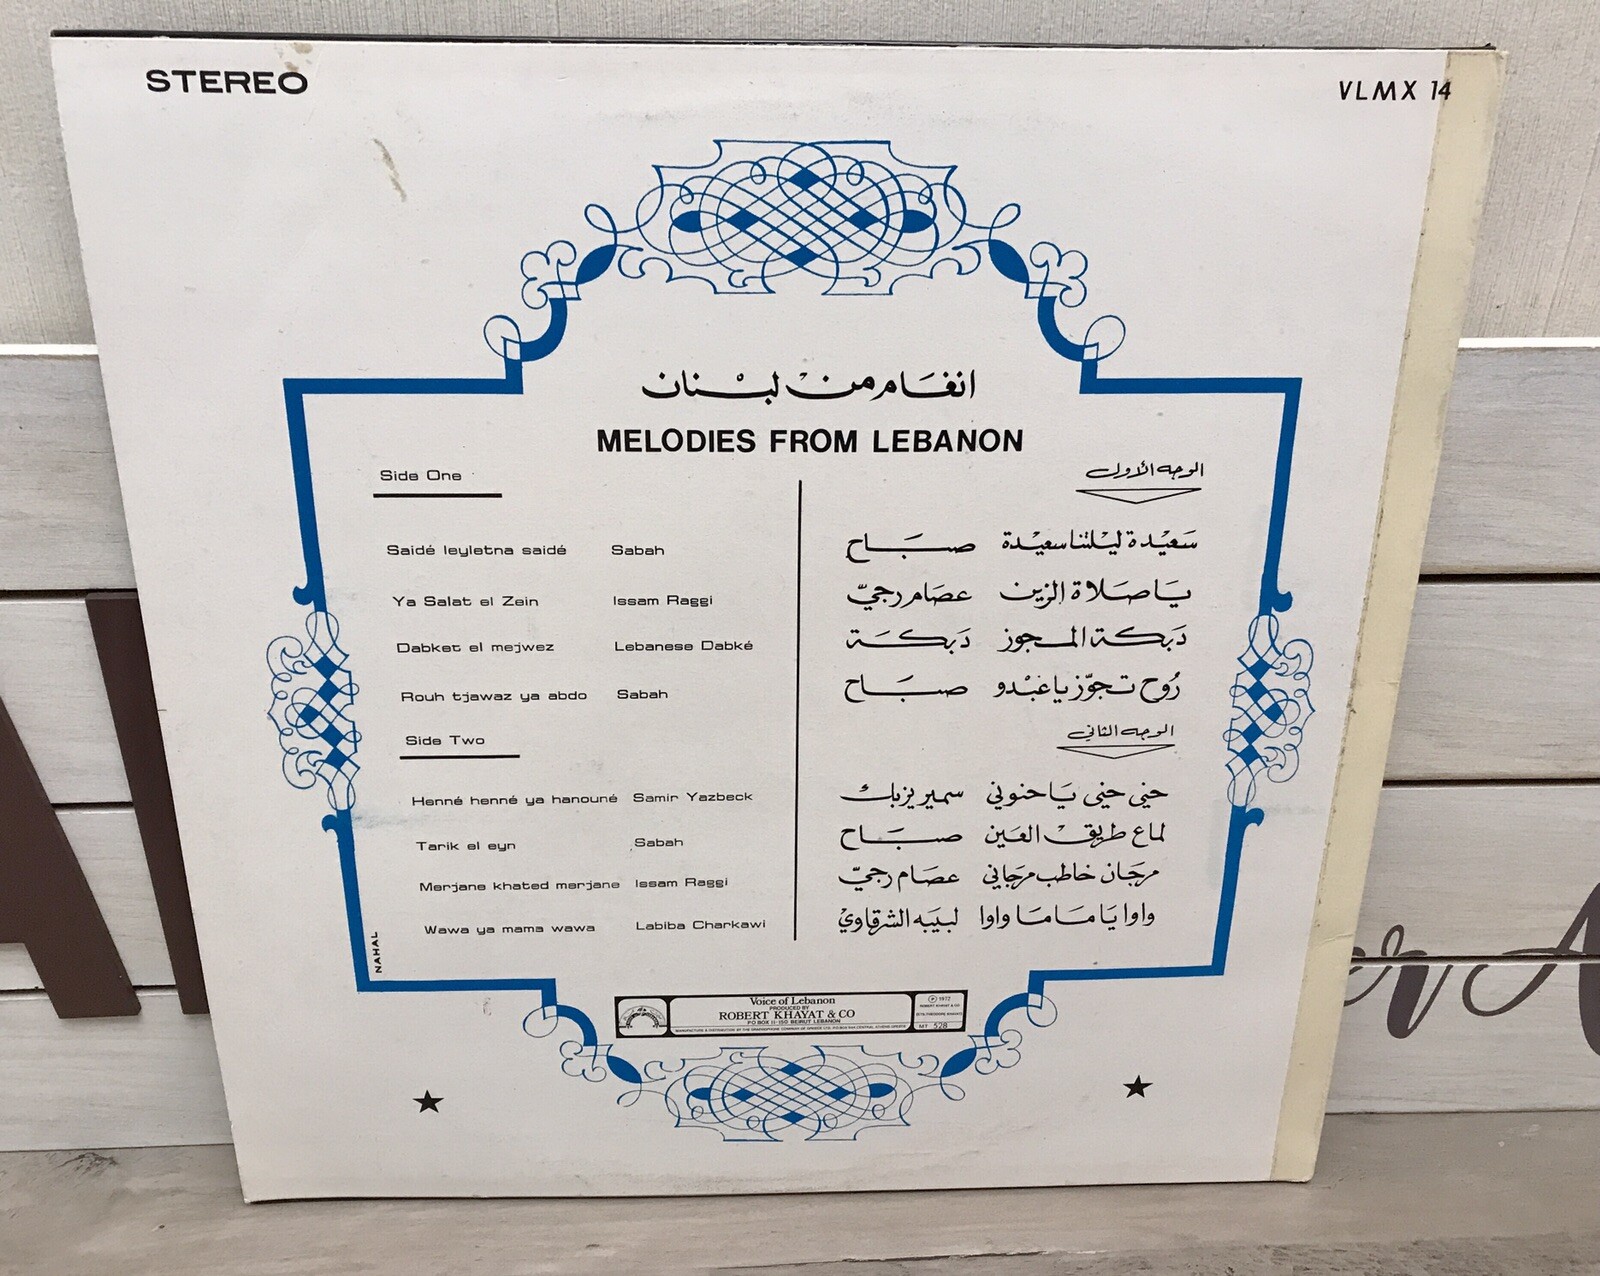 STEREO
VLMX 14
انغام من لبنان
MELODIES FROM LEBANON
Side One
Saidé leyletna saidé Sabah
Ya Salat el Zein Issam Raggi
Dabket el mejwez Lebanese Dabké
Rouh tjawaz ya abdo Sabah
Side Two
Henné henné ya hanouné Samir Yazbeck
Tarik el eyn Sabah
Merjane khated merjane Issam Raggi
Wawa ya mama wawa Labiba Charkawi
الوجه الأول
سَعيْدة ليْلتنا سعيْدة صبَاح
يَا صَلاة الزين عصَام رجيّ
دَبكة المجوز دَبكَة
رُوح تجوّز يا عَبْدو صبَاح
الوجه الثاني
حني حني يَا حنوني سمير يزبك
لماع طريق العَين صبَاح
مرجَان خاطب مرجاني عصَام رجيّ
واوا يَا مَامَا واوا لبيَبه الشرقاويْ
NAHAL
Voice of Lebanon
PRODUCED BY
ROBERT KHAYAT & CO
PO BOX 11-150 BEIRUT LEBANON
℗ 1972
ROBERT KHAYAT & CO
MT 528